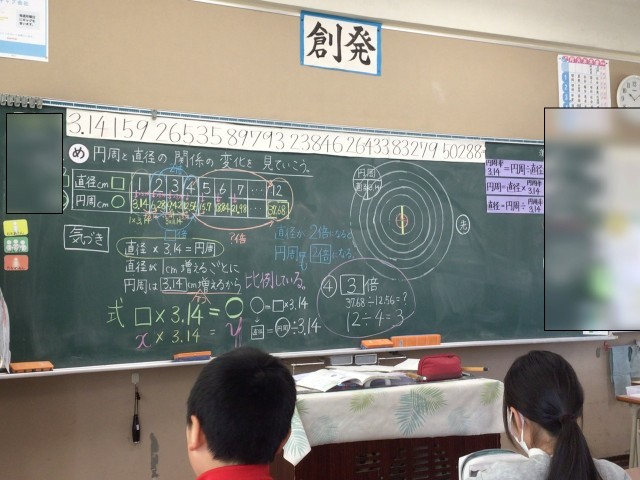 創発
3.14159 26535 89793 23846 26433 83279 50288
め 円周と直径の関係の変化を見ていこう。
直径cm □ 1 2 3 4 5 6 7 … 12
円周cm ○ 3.14 6.28 9.42 12.56 15.7 18.84 21.98 37.68
気づき
直径 × 3.14 = 円周
直径が 1cm 増えるごとに
円周は 3.14cm 増えるから 比例している。
式 □ × 3.14 = ○
x × 3.14 = y
○ = □ × 3.14
直径 = 円周 ÷ 3.14
直径が 2倍になる
円周も 2倍になる
④ 3 倍
37.68 ÷ 12.56 = ?
12 ÷ 4 = 3
円周率 3.14 = 円周 ÷ 直径
円周 = 直径 × 円周率 3.14
直径 = 円周 ÷ 円周率 3.14